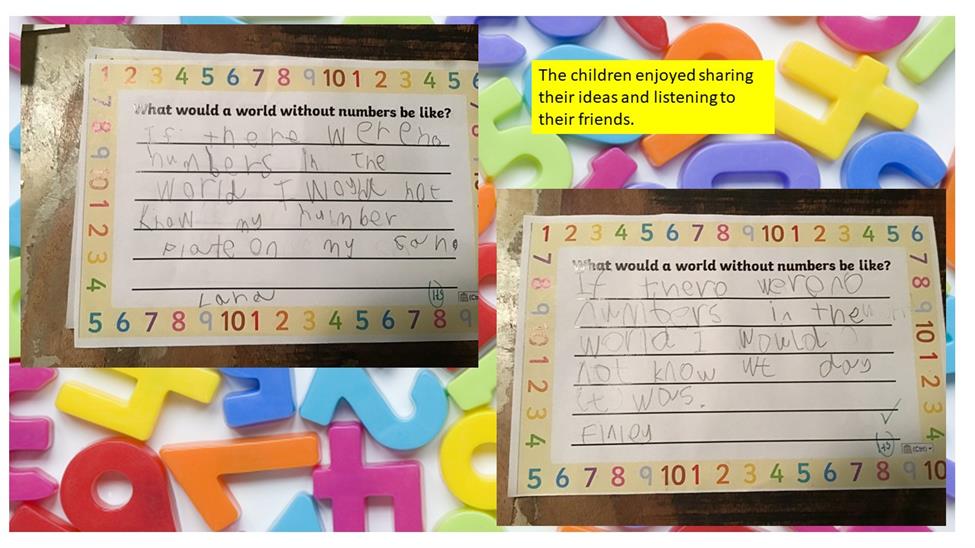 1 2 3 4 5 6 7 8 9 10 1 2 3 4 5 6
7
8
9
10
1
2
3
4
What would a world without numbers be like?
If there wereno
numbers in the
World I Would not
know my humber
Plate on my
Lana
HS
5 6 7 8 9 10 1 2 3 4 5 6 7 8 9
The children enjoyed sharing
their ideas and listening to
their friends.
1 2 3 4 5 6 7 8 9 10 1 2 3 4 5 6
7
8
9
10
1
2
3
4
7
8
9
10
1
2
3
4
What would a world without numbers be like?
If there wereno
numbers in the
world I would
not know wt day
it was.
Finley
HS
(Ctrl)
5 6 7 8 9 10 1 2 3 4 5 6 7 8 9 10